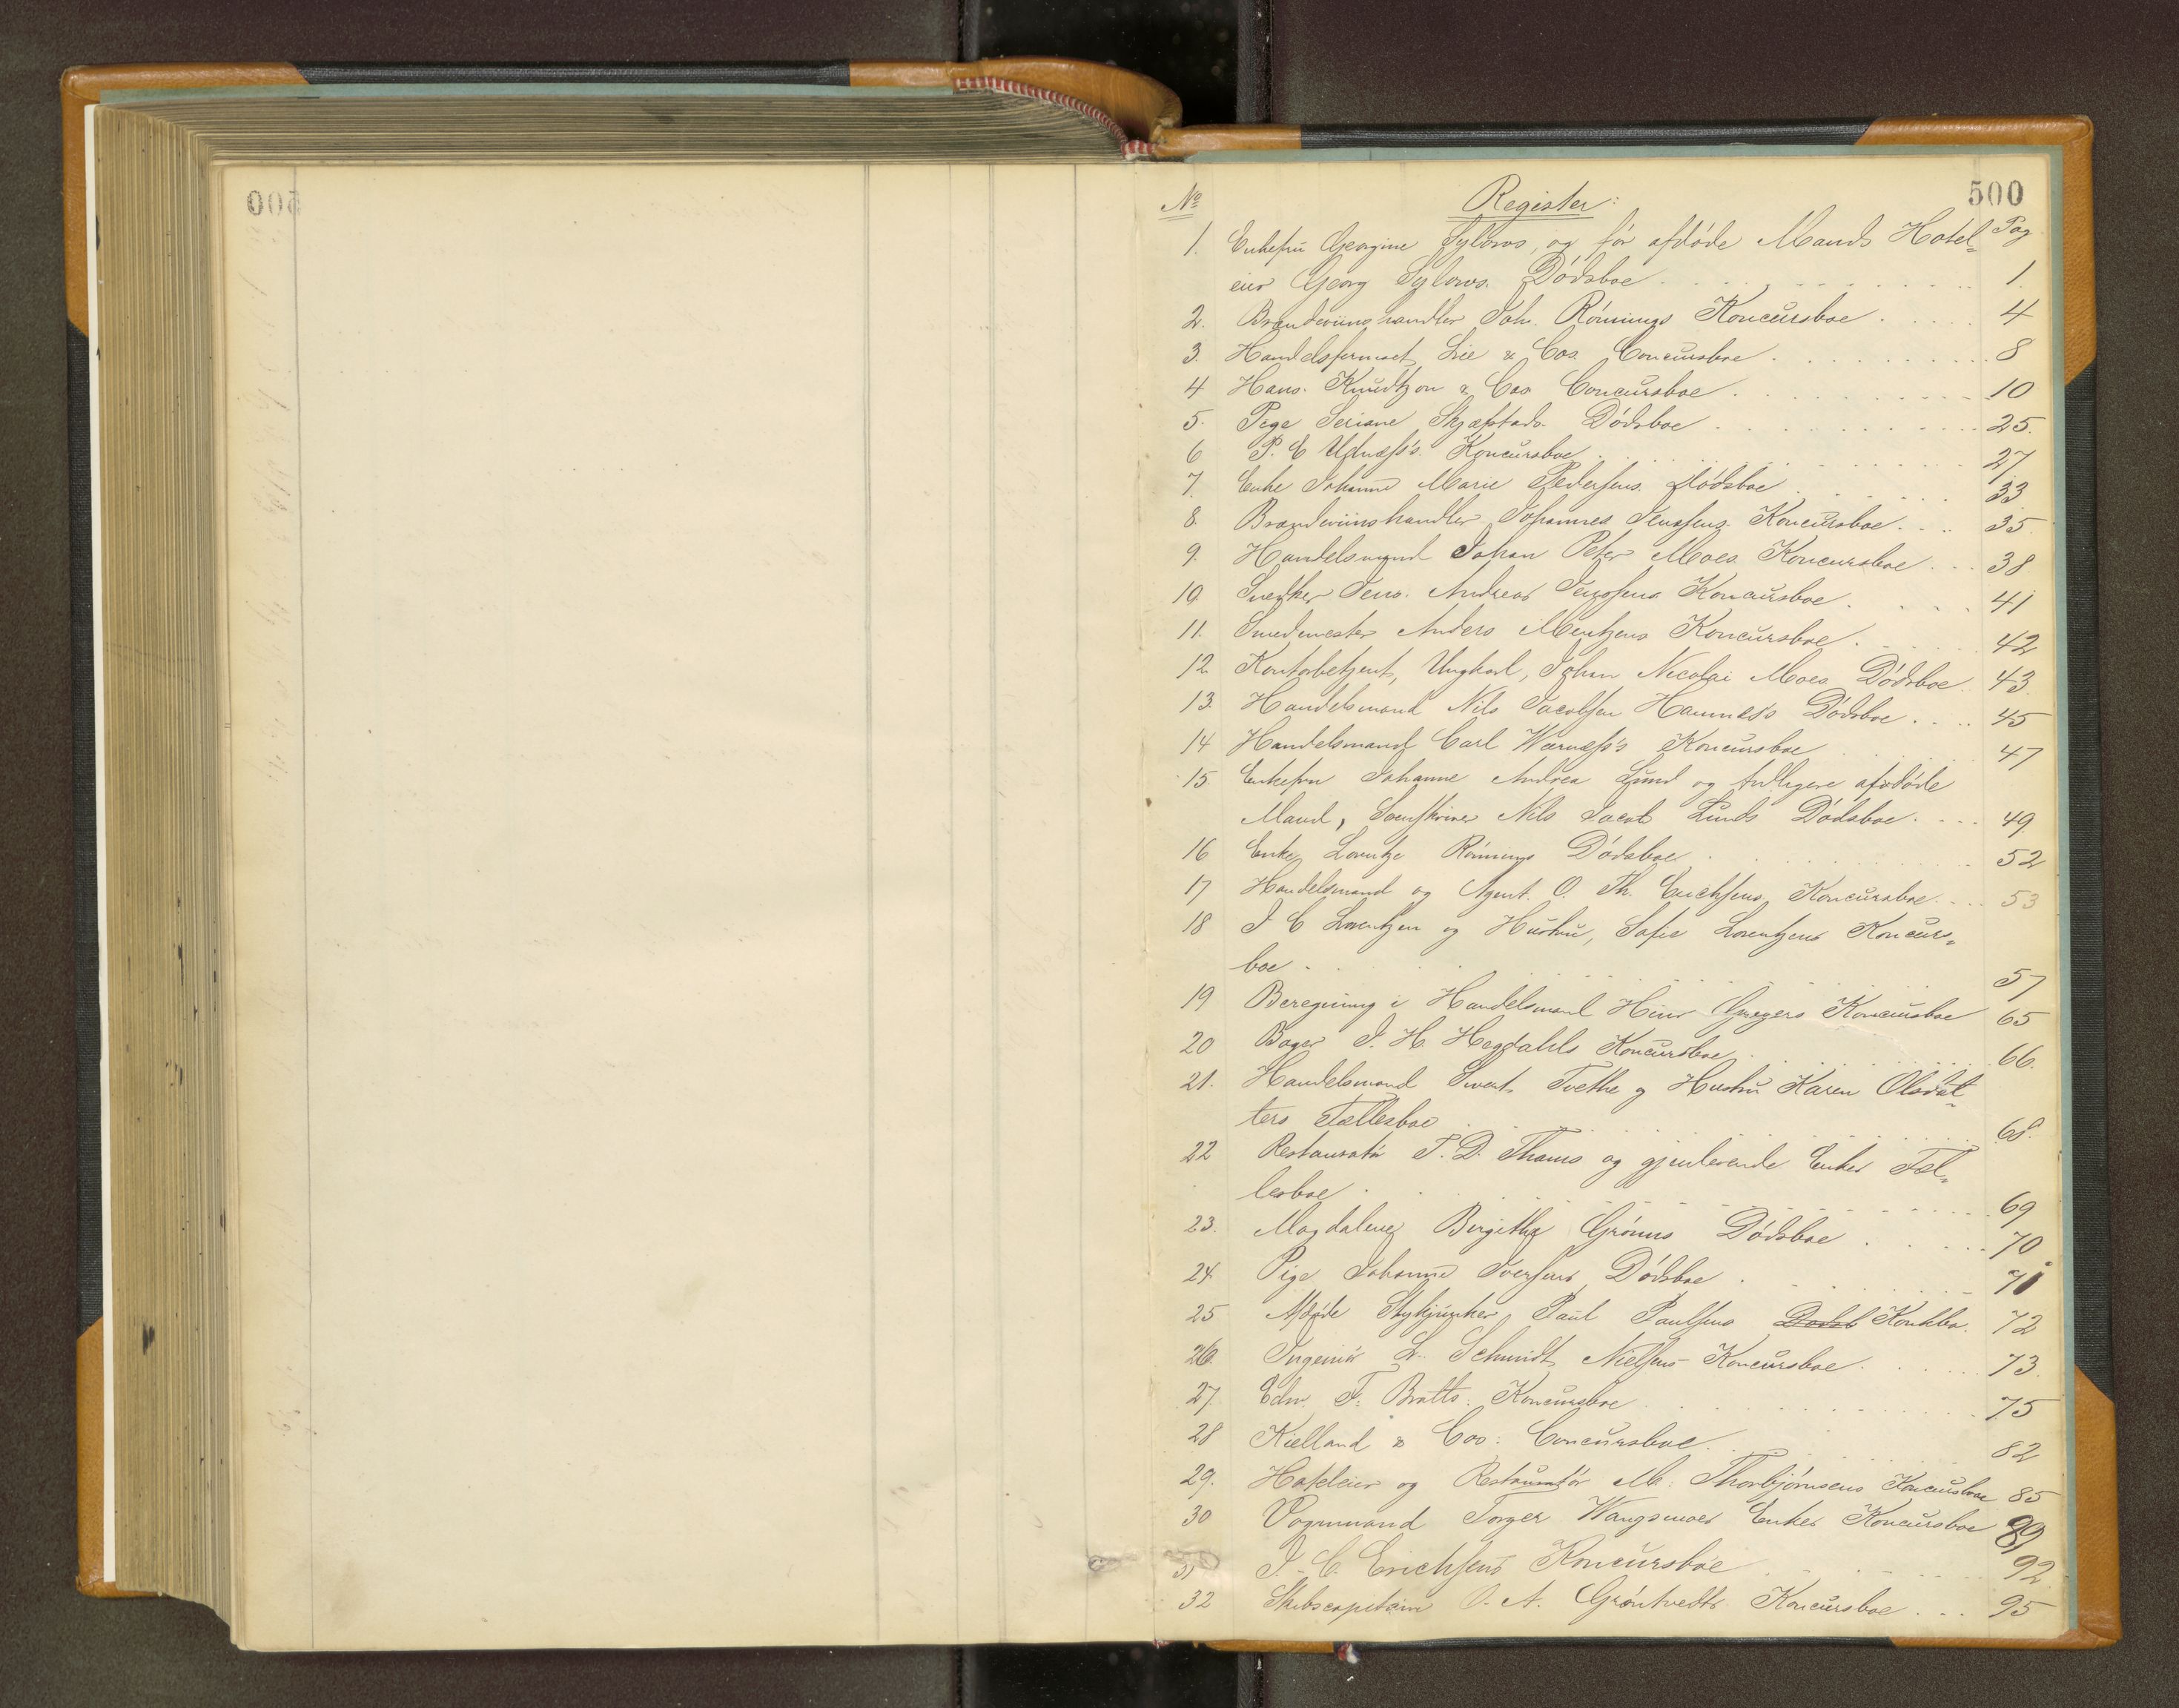 500
Nº Register:
Pag
1. Enkefru Georgine Sylows, og før afdøde Mands Hotel=
eier Georg Sylows Dødsboe 1.
2. Brændeviinshandler Joh. Rønnings Koncursboe 4
3. Handelsfirmaet Lie & Cos. Concursboe 8
4 Hans Knudtzon & Cos Concursboe 10
5. Pige Seriane Skjæfstads Dødsboe 25.
6 P. E Udnæss's Koncursboe 27
7. Enke Johanne Marie Pedersens Dødsboe 33
8. Brændeviinshandler Johannes Jenssens Koncursboe 35
9. Handelsmand Johan Peter Moes Koncursboe 38
10. Snedker Jens Andreas Jenssens Koncursboe 41
11. Smedmester Anders Mentzens Koncursboe 42
12 Kontorbetjent, Ungkarl, Johan Nicolai Moes Dødsboe 43.
13. Handelsmand Nils Jacobsen Hamnes's Dødsboe 45
14 Handelsmand Carl Wærnæss's Koncursboe 47
15. Enkefru Johanne Andrea Lund og tidligere afdøde
Mand, Sorenskriver Nils Jacob Lunds Dødsboe 49
16 Enke Lorentze Rønnings Dødsboe 52
17 Handelsmand og Agent O. Th. Erichsens Koncursboe 53
18 J C Lorentzen og Hustru, Sofie Lorentzens Koncurs=
boe 57
19 Beregning i Handelsmand Hinr Gregers Koncursboe 65
20 Bager J. H. Hegdahls Koncursboe 66.
21. Handelsmand Sivert Tvethe og Hustru Karen Olsdat=
ters Fællesboe 68.
22 Restauratør T. D. Thams og gjenlevende Enkes Fæl=
lesboe 69
23. Magdalene Birgithe Grønns Dødsboe 70
24 Pige Johanne Iversens Dødsboe 71
25 Afdøde Stykjunker Paul Paulsens Dødsb Konkbo. 72
26. Ingeniør L. Schmidt Nielsens Koncursboe 73.
27 Edw. F. Bratts Koncursboe 75
28 Kielland & Cos: Concursboe 82
29. Hoteleier og Restauratør M. Thorbjørnsens Koncursboe 85
30 Vognmand Torger Wangsmoes Enkes Koncursboe 89
31 J. C. Erichsens Koncursboe 92.
32 Skibscapitain O. A. Grøntvedts Koncursboe 95